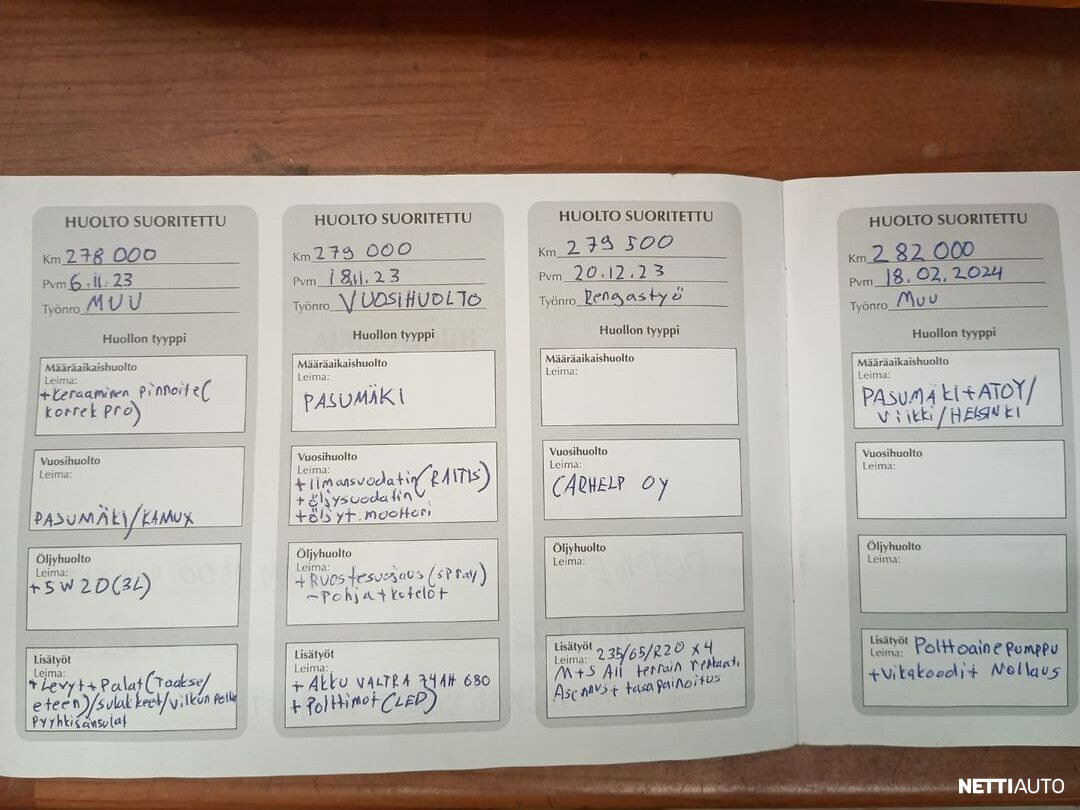 HUOLTO SUORITETTU
Km 278 000
Pvm 6.11.23
Työnro MUU
Huollon tyyppi
Määräaikaishuolto
Leima:
+Keraaminen pinnoite(
Korrek Pro)
Vuosihuolto
Leima:
PASUMÄKI/KAMUX
Öljyhuolto
Leima:
+5W20(3L)
Lisätyöt
Leima:
+Levyt+Palat(Taakse/
eteen)/sulakkeet/vilkun
Pyyhkisänsulat
HUOLTO SUORITETTU
Km 279 000
Pvm 18.11.23
Työnro VUOSIHUOLTO
Huollon tyyppi
Määräaikaishuolto
Leima:
PASUMÄKI
Vuosihuolto
Leima:
+ilmansuodatin(RAITIS)
+öljysuodatin
+öljyt.moottori
Öljyhuolto
Leima:
+Ruostesuojaus(spray)
-Pohja+kotelot
Lisätyöt
Leima:
+AKKU VALTRA 74AH 680
+Polttimot(LED)
HUOLTO SUORITETTU
Km 279 500
Pvm 20.12.23
Työnro Rengastyö
Huollon tyyppi
Määräaikaishuolto
Leima:
Vuosihuolto
Leima:
CARHELP OY
Öljyhuolto
Leima:
Lisätyöt
Leima: 235/65/R20 x4
M+S All terrain renkaat.
Asennus+tasapainoitus
HUOLTO SUORITETTU
Km 282 000
Pvm 18.02.2024
Työnro Muu
Huollon tyyppi
Määräaikaishuolto
Leima:
PASUMÄKI+ATOY/
Viikki/HELSINKI
Vuosihuolto
Leima:
Öljyhuolto
Leima:
Lisätyöt Polttoainepumppu
Leima:
+Vikakoodit Nollaus
NETTIAUTO